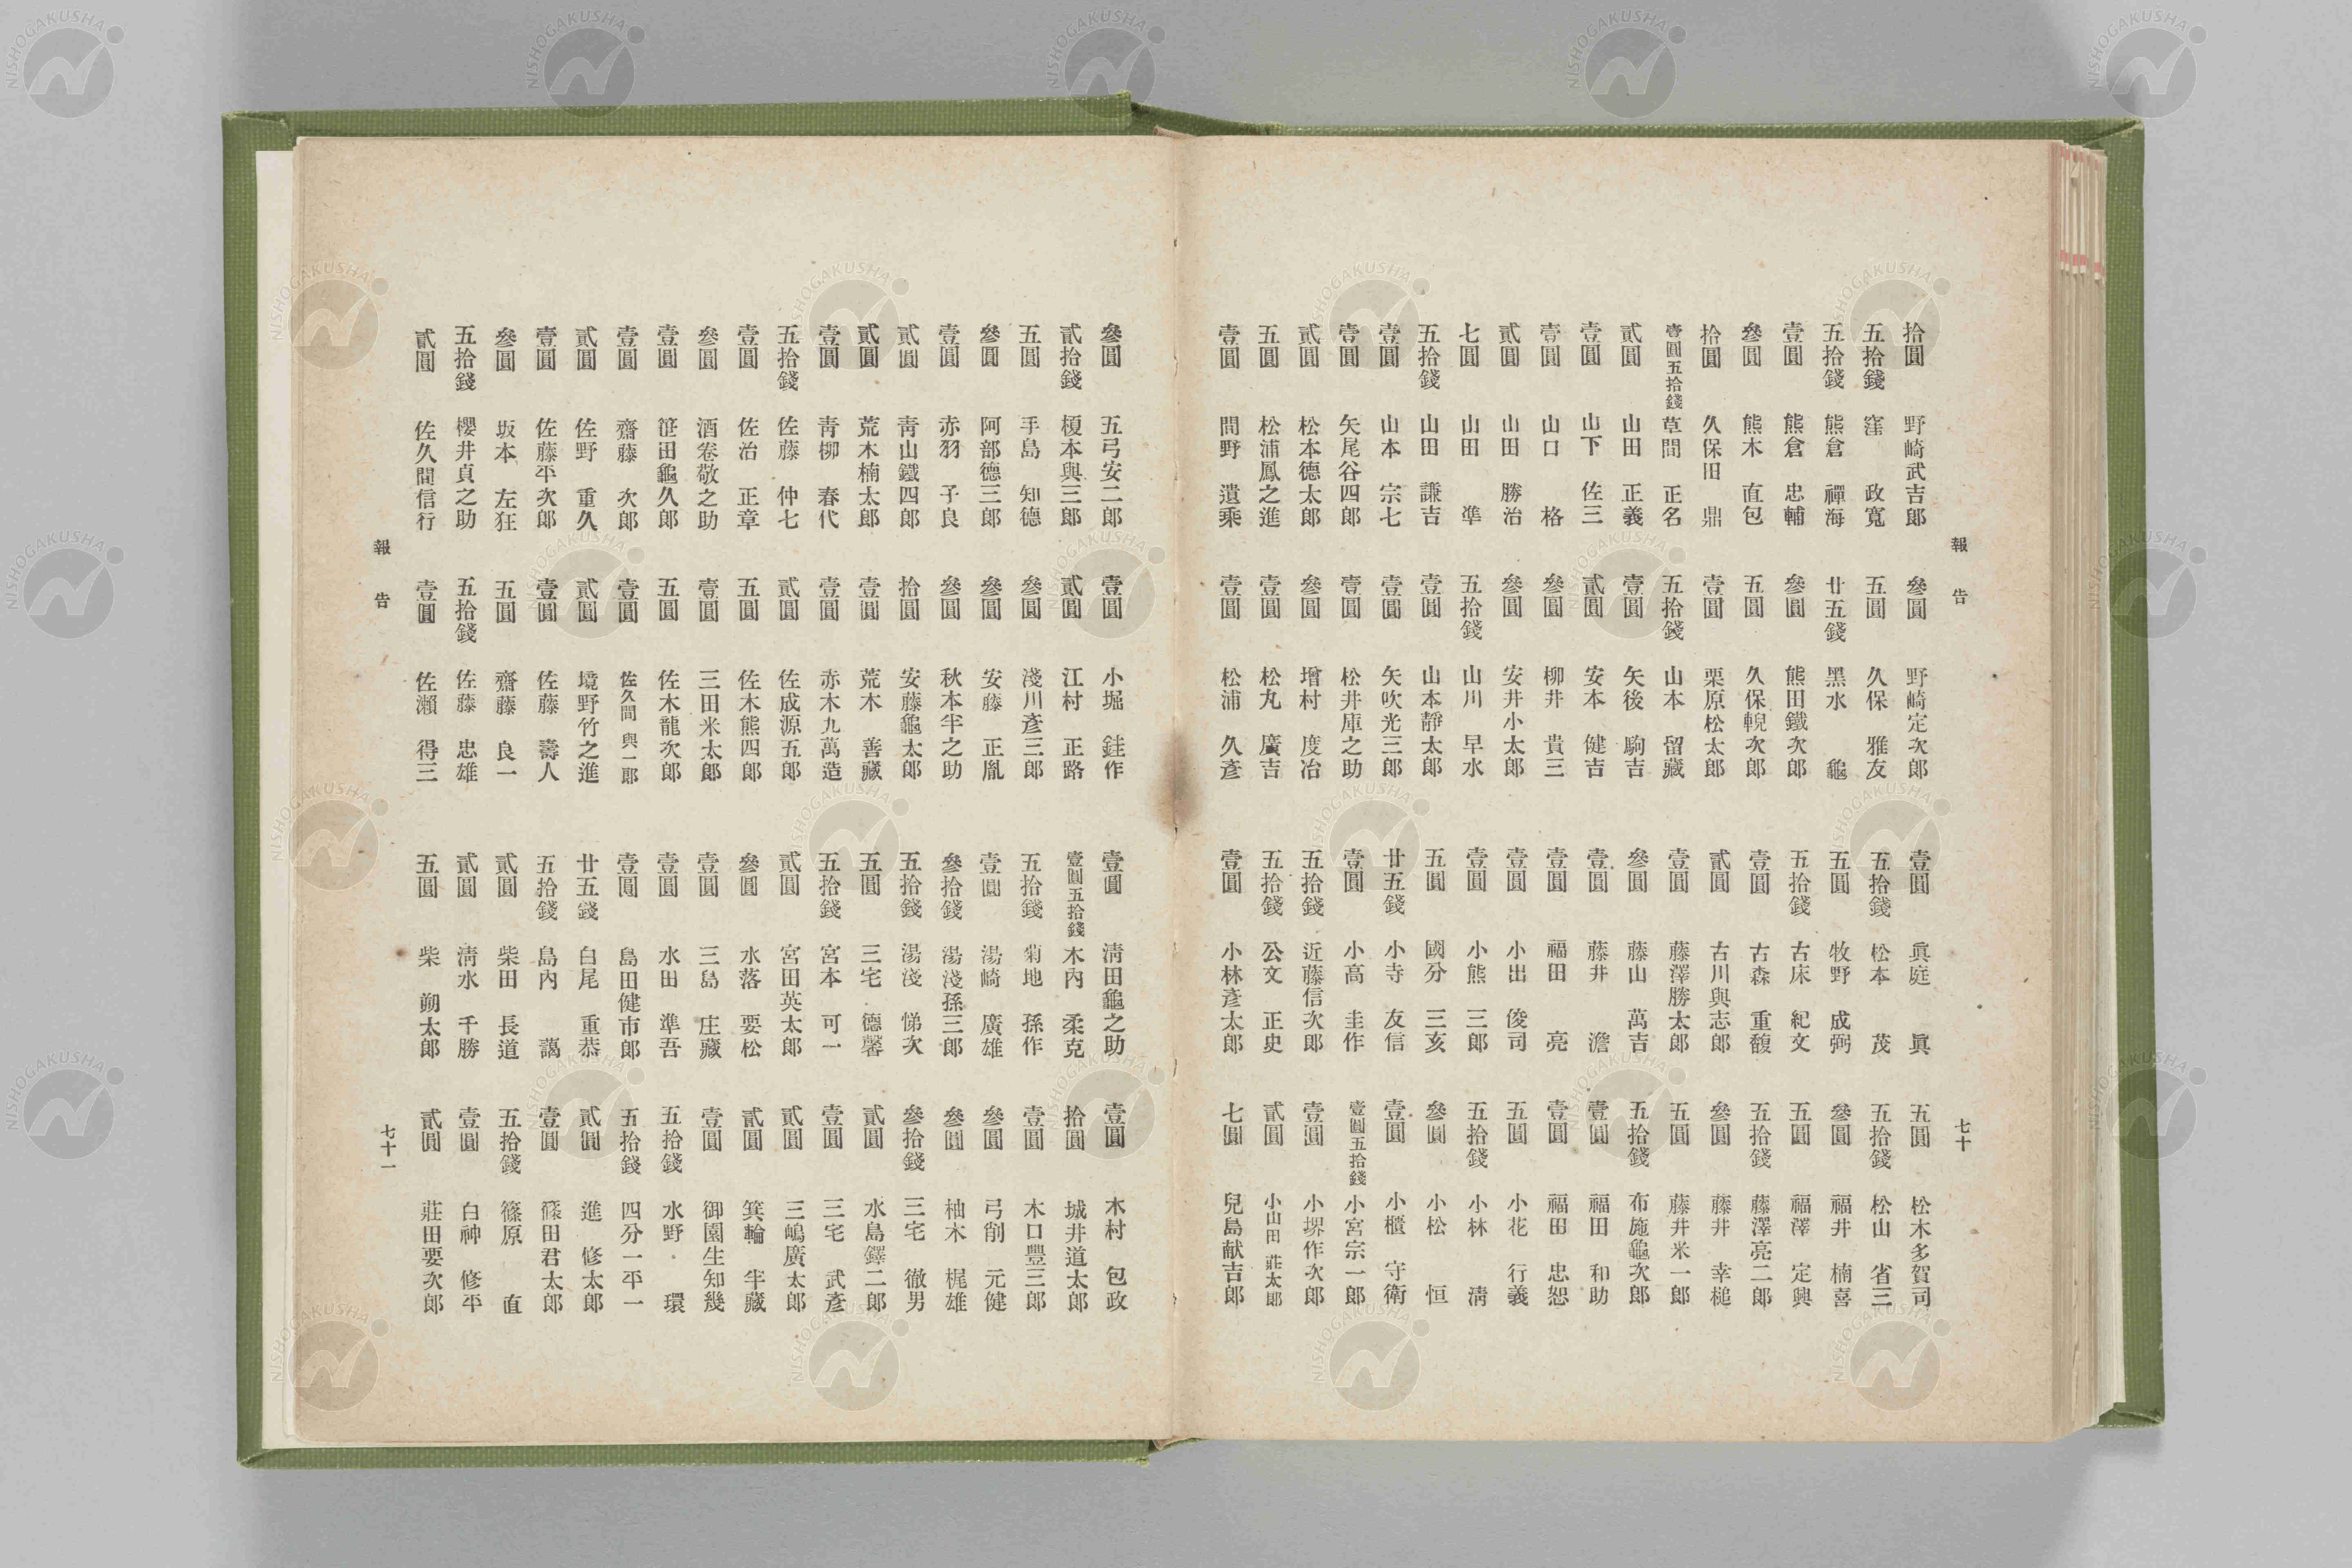 報告
七十
拾圓 野崎武吉郎
五拾錢 窪政寬
五拾錢 熊倉禪海
壹圓 熊倉忠輔
參圓 熊木直包
拾圓 久保田鼎
壹圓五拾錢 草間正名
貳圓 山田正義
壹圓 山下佐三
壹圓 山口格
貳圓 山田勝治
七圓 山田準
五拾錢 山田謙吉
壹圓 山本宗七
壹圓 矢尾谷四郎
貳圓 松本德太郎
五圓 松浦鳳之進
壹圓 間野遺乘
參圓 野崎定次郎
五圓 久保雅友
廿五錢 黑水龜
參圓 熊田鐵次郎
五圓 久保輗次郎
壹圓 栗原松太郎
五拾錢 山本留藏
壹圓 矢後駒吉
貳圓 安本健吉
參圓 柳井貴三
參圓 安井小太郎
五拾錢 山川早水
壹圓 山本靜太郎
壹圓 矢吹光三郎
壹圓 松井庫之助
參圓 增村度冶
壹圓 松丸廣吉
壹圓 松浦久彥
壹圓 眞庭眞
五拾錢 松本茂
五圓 牧野成弼
五拾錢 古床紀文
壹圓 古森重馥
貳圓 古川與志郎
壹圓 藤澤勝太郎
參圓 藤山萬吉
壹圓 藤井澹
壹圓 福田亮
壹圓 小出俊司
壹圓 小熊三郎
五圓 國分三亥
廿五錢 小寺友信
壹圓 小高圭作
五拾錢 近藤信次郎
五拾錢 公文正史
壹圓 小林彥太郎
五圓 松木多賀司
五拾錢 松山省三
參圓 福井楠喜
五圓 福澤定興
五拾錢 藤澤亮二郎
參圓 藤井幸槌
五圓 藤井米一郎
五拾錢 布施龜次郎
壹圓 福田和助
壹圓 福田忠恕
五圓 小花行義
五拾錢 小林淸
參圓 小松恒
壹圓 小櫃守衛
壹圓五拾錢 小宮宗一郎
壹圓 小堺作次郎
貳圓 小山田莊太郎
七圓 兒島献吉郎
參圓 五弓安二郎
貳拾錢 榎本與三郎
五圓 手島知德
參圓 阿部德三郎
壹圓 赤羽子良
貳圓 青山鐵四郎
貳圓 荒木楠太郎
壹圓 青柳春代
五拾錢 佐藤仲七
壹圓 佐治正章
參圓 酒卷敬之助
壹圓 笹田龜久郎
壹圓 齋藤次郎
貳圓 佐野重久
壹圓 佐藤平次郎
參圓 坂本左狂
五拾錢 櫻井貞之助
貳圓 佐久間信行
壹圓 小堀鉒作
貳圓 江村正路
參圓 淺川彥三郎
參圓 安藤正胤
參圓 秋本半之助
拾圓 安藤龜太郎
壹圓 荒木善藏
壹圓 赤木九萬造
貳圓 佐成源五郎
五圓 佐木熊四郎
壹圓 三田米太郎
五圓 佐木龍次郎
壹圓 佐久間與一郎
貳圓 境野竹之進
壹圓 佐藤壽人
五圓 齋藤良一
五拾錢 佐藤忠雄
壹圓 佐瀨得三
壹圓 淸田龜之助
壹圓五拾錢 木內柔克
五拾錢 菊地孫作
壹圓 湯崎廣雄
參拾錢 湯淺孫三郎
五拾錢 湯淺悌次
五圓 三宅德馨
五拾錢 宮本可一
貳圓 宮田英太郎
參圓 水落要松
壹圓 三島庄藏
壹圓 水田準吾
壹圓 島田健市郎
廿五錢 白尾重恭
五拾錢 島內藹
貳圓 柴田長道
貳圓 淸水千勝
五圓 柴朔太郎
壹圓 木村包政
拾圓 城井道太郎
壹圓 木口豐三郎
參圓 弓削元健
參圓 柚木梶雄
參拾錢 三宅徹男
貳圓 水島鐸二郎
壹圓 三宅武彥
貳圓 三嶋廣太郎
貳圓 箕輪半藏
壹圓 御園生知幾
五拾錢 水野環
五拾錢 四分一平一
貳圓 進修太郎
壹圓 篠田君太郎
五拾錢 篠原直
壹圓 白神修平
貳圓 莊田要次郎
報告
七十一